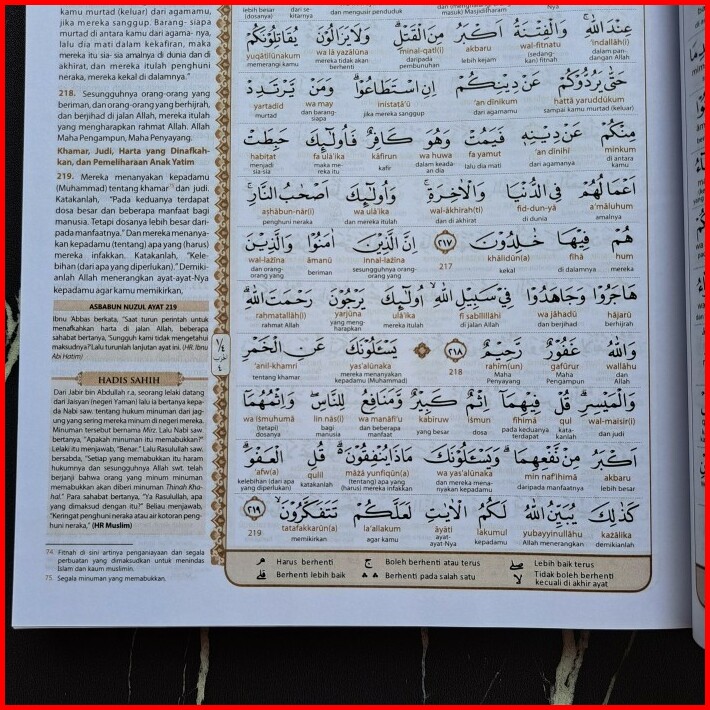 kamu murtad (keluar) dari agamamu,
jika mereka sanggup. Barang- siapa
murtad di antara kamu dari agama- nya,
lalu dia mati dalam kekafiran, maka
mereka itu sia- sia amalnya di dunia dan di
akhirat, dan mereka itulah penghuni
neraka, mereka kekal di dalamnya."
218. Sesungguhnya orang-orang yang
beriman, dan orang-orang yang berhijrah,
dan berjihad di jalan Allah, mereka itulah
yang mengharapkan rahmat Allah. Allah
Maha Pengampun, Maha Penyayang.
Khamar, Judi, Harta yang Dinafkah-
kan, dan Pemeliharaan Anak Yatim
219. Mereka menanyakan kepadamu
(Muhammad) tentang khamar⁷⁵ dan judi.
Katakanlah, "Pada keduanya terdapat
dosa besar dan beberapa manfaat bagi
manusia. Tetapi dosanya lebih besar dari-
pada manfaatnya." Dan mereka menanya-
kan kepadamu (tentang) apa yang (harus)
mereka infakkan. Katakanlah, "Kele-
bihan (dari apa yang diperlukan)." Demiki-
anlah Allah menerangkan ayat-ayat-Nya
kepadamu agar kamu memikirkan,
ASBABUN NUZUL AYAT 219
Ibnu 'Abbas berkata, "Saat turun perintah untuk
menafkahkan harta di jalan Allah, beberapa
sahabat bertanya, 'Sungguh kami tidak mengetahui
maksudnya? Lalu turunlah lanjutan ayat ini. (HR. Ibnu
Abi Hatim)
HADIS SAHIH
Dari Jabir bin Abdullah r.a, seorang lelaki datang
dari Jaisyan (negeri Yaman) lalu ia bertanya kepa-
da Nabi saw. tentang hukum minuman dari jag-
ung yang sering mereka minum di negeri mereka.
Minuman tersebut bernama Mirz. Lalu Nabi saw.
bertanya, "Apakah minuman itu memabukkan?"
Lelaki itu menjawab, "Benar." Lalu Rasulullah saw.
bersabda, "Setiap yang memabukkan itu haram
hukumnya dan sesungguhnya Allah swt. telah
berjanji bahwa orang yang minum minuman
memabukkan akan diberi minuman Thinah Kho-
bal." Para sahabat bertanya, "Ya Rasulullah, apa
yang dimaksud dengan itu?" Beliau menjawab,
"Keringat penghuni neraka atau air kotoran peng-
huni neraka," (HR Muslim)
74. Fitnah di sini artinya penganiayaan dan segala
perbuatan yang dimaksudkan untuk menindas
Islam dan kaum muslimin.
75. Segala minuman yang memabukkan.
عِنْدَ اللّٰهِ ۚ وَالْفِتْنَةُ اَكْبَرُ مِنَ الْقَتْلِ ۗ وَلَا يَزَالُوْنَ يُقَاتِلُوْنَكُمْ
'indallāh(i) wal-fitnatu akbaru minal-qatl(i) wa lā yazālūna yuqātilūnakum
dalam pan- dan (sedang- lebih kejam daripada mereka tidak akan memerangi kamu
حَتّٰى يَرُدُّوْكُمْ عَنْ دِيْنِكُمْ اِنِ اسْتَطَاعُوْا ۗ وَمَنْ يَّرْتَدِدْ
ḥattā yaruddūkum 'an dīnikum inistaṭā'ū wa may yartadid
sampai kamu murtad (keluar) dari agamamu jika mereka sanggup dan barang- murtad
siapa
مِنْكُمْ عَنْ دِيْنِهٖ فَيَمُتْ وَهُوَ كَافِرٌ فَاُولٰۤىِٕكَ حَبِطَتْ
minkum 'an dīnihī fa yamut wa huwa kāfirun fa ulā'ika ḥabiṭat
di antara dari agamanya lalu dia mati dalam keada- kafir maka me- menjadi
kamu an dia reka itu sia-sia
اَعْمَالُهُمْ فِى الدُّنْيَا وَالْاٰخِرَةِ ۚ وَاُولٰۤىِٕكَ اَصْحٰبُ النَّارِ ۚ
a'māluhum fid-dun-yā wal-ākhirah(ti) wa ulā'ika aṣḥābun-nār(i)
amalnya di dunia dan di akhirat dan mereka itulah penghuni neraka
هُمْ فِيْهَا خٰلِدُوْنَ ٢١٧ اِنَّ الَّذِيْنَ اٰمَنُوْا وَالَّذِيْنَ
hum fīhā khālidūn(a) 217 innal-lażīna āmanū wal-lażīna
mereka di dalamnya kekal sesungguhnya orang- beriman dan orang-
orang yang orang yang
هَاجَرُوْا وَجَاهَدُوْا فِيْ سَبِيْلِ اللّٰهِ ۙ اُولٰۤىِٕكَ يَرْجُوْنَ رَحْمَتَ اللّٰهِ ۗ
hājarū wa jāhadū fī sabīlillāhi ulā'ika yarjūna raḥmatallāh(i)
berhijrah dan berjihad di jalan Allah mereka itulah yang meng- rahmat Allah
harapkan
وَاللّٰهُ غَفُوْرٌ رَّحِيْمٌ ٢١٨ يَسْـَٔلُوْنَكَ عَنِ الْخَمْرِ
wallāhu gafūrur raḥīm(un) 218 yas'alūnaka 'anil-khamri
dan Maha Maha mereka menanyakan tentang khamar
Allah Pengampun Penyayang kepadamu (Muhammad)
وَالْمَيْسِرِ ۗ قُلْ فِيْهِمَآ اِثْمٌ كَبِيْرٌ وَّمَنَافِعُ لِلنَّاسِ ۖ وَاِثْمُهُمَآ
wal-maisir(i) qul fīhimā iṡmun kabīruw wa manāfi'u lin nās(i) wa iṡmuhumā
dan judi kata- pada keduanya dosa yang besar dan beberapa bagi (tetapi)
kanlah terdapat manfaat manusia dosanya
اَكْبَرُ مِنْ نَّفْعِهِمَا ۗ وَيَسْـَٔلُوْنَكَ مَاذَا يُنْفِقُوْنَ ۗ قُلِ الْعَفْوَ ۗ
akbaru min naf'ihimā wa yas'alūnaka māżā yunfiqūn(a) qulil 'afw(a)
lebih besar daripada manfaatnya dan mereka mena- (tentang) apa yang katakanlah kelebihan (dari apa
nyakan kepadamu (harus) mereka infakkan yang diperlukan)
كَذٰلِكَ يُبَيِّنُ اللّٰهُ لَكُمُ الْاٰيٰتِ لَعَلَّكُمْ تَتَفَكَّرُوْنَ ۙ ٢١٩
każālika yubayyinullāhu lakumul āyāti la'allakum tatafakkarūn(a) 219
demikianlah Allah menerangkan kepadamu ayat- agar kamu memikirkan
ayat-Nya
Harus berhenti Boleh berhenti atau terus Lebih baik terus
Berhenti lebih baik Berhenti pada salah satu Tidak boleh berhenti
kecuali di akhir ayat